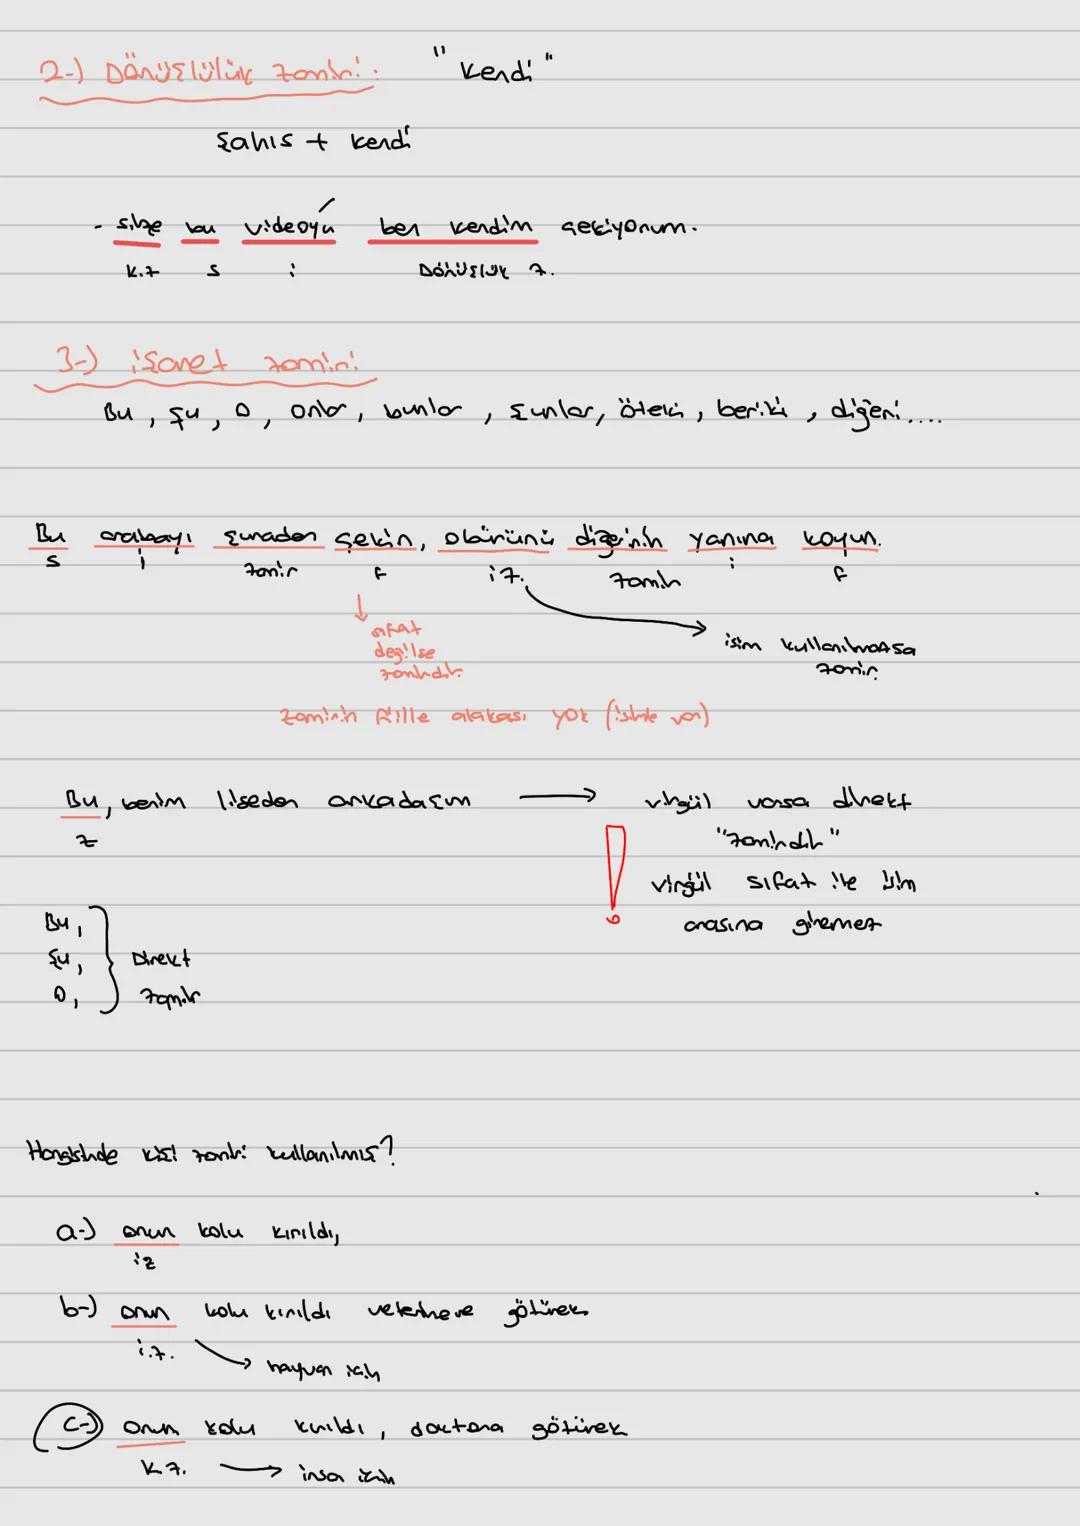 2-) Dönüşlülük zamiri: "kendi"
Şahıs + kendi
- size bu videoyu ben kendim çekiyorum.
K.Z S i Dönüşlük Z.
3-) işaret zamiri
Bu, şu, O, onlar, bunlar, şunlar, öteki, beriki, diğeri....
Bu arabayı şuradan çekin, öbürünü diğerinin yanına koyun.
S i zamir F i Z. zamir i F
sıfat
değilse
zamirdir.
isim kullanılmazsa
zamir.
zamirin fiille alakası yok (isimle var)
Bu, benim liseden arkadaşım → virgül varsa direkt
Z
"zamirdir"
virgül sıfat ile isim
arasına giremez
Bu,
Şu,
O,
Direkt
zamir
Hangisinde kişi zamiri kullanılmış?
a-) onun kolu kırıldı,
iz
b-) onun kolu kırıldı veterinere götürek
i.Z. → hayvan için
c-) onun kolu kırıldı, doktora götürek
K Z. → insa için